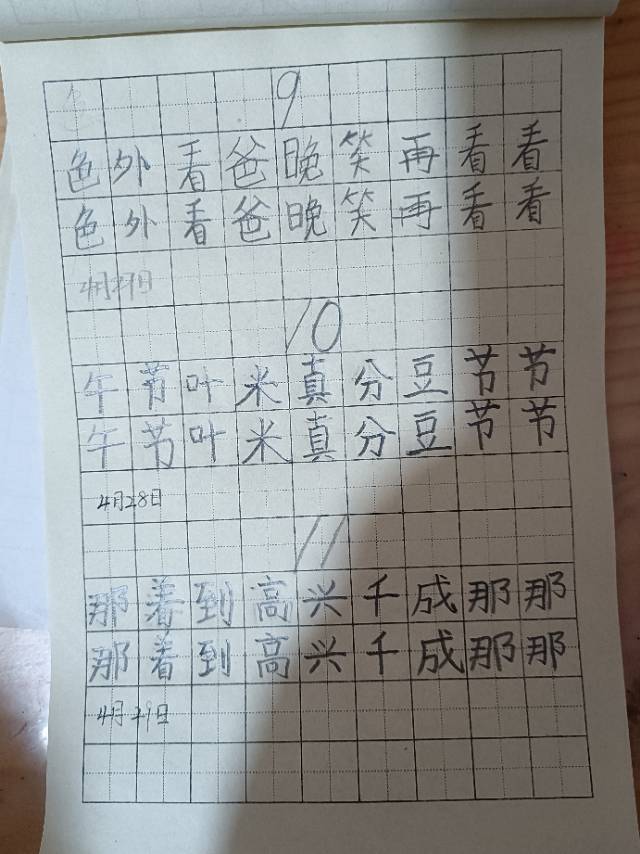 9
色外看爸晚笑再看看
色外看爸晚笑再看看
4月27日
10
午节叶米真分豆节节
午节叶米真分豆节节
4月28日
11
那着到高兴千成那那
那着到高兴千成那那
4月29日